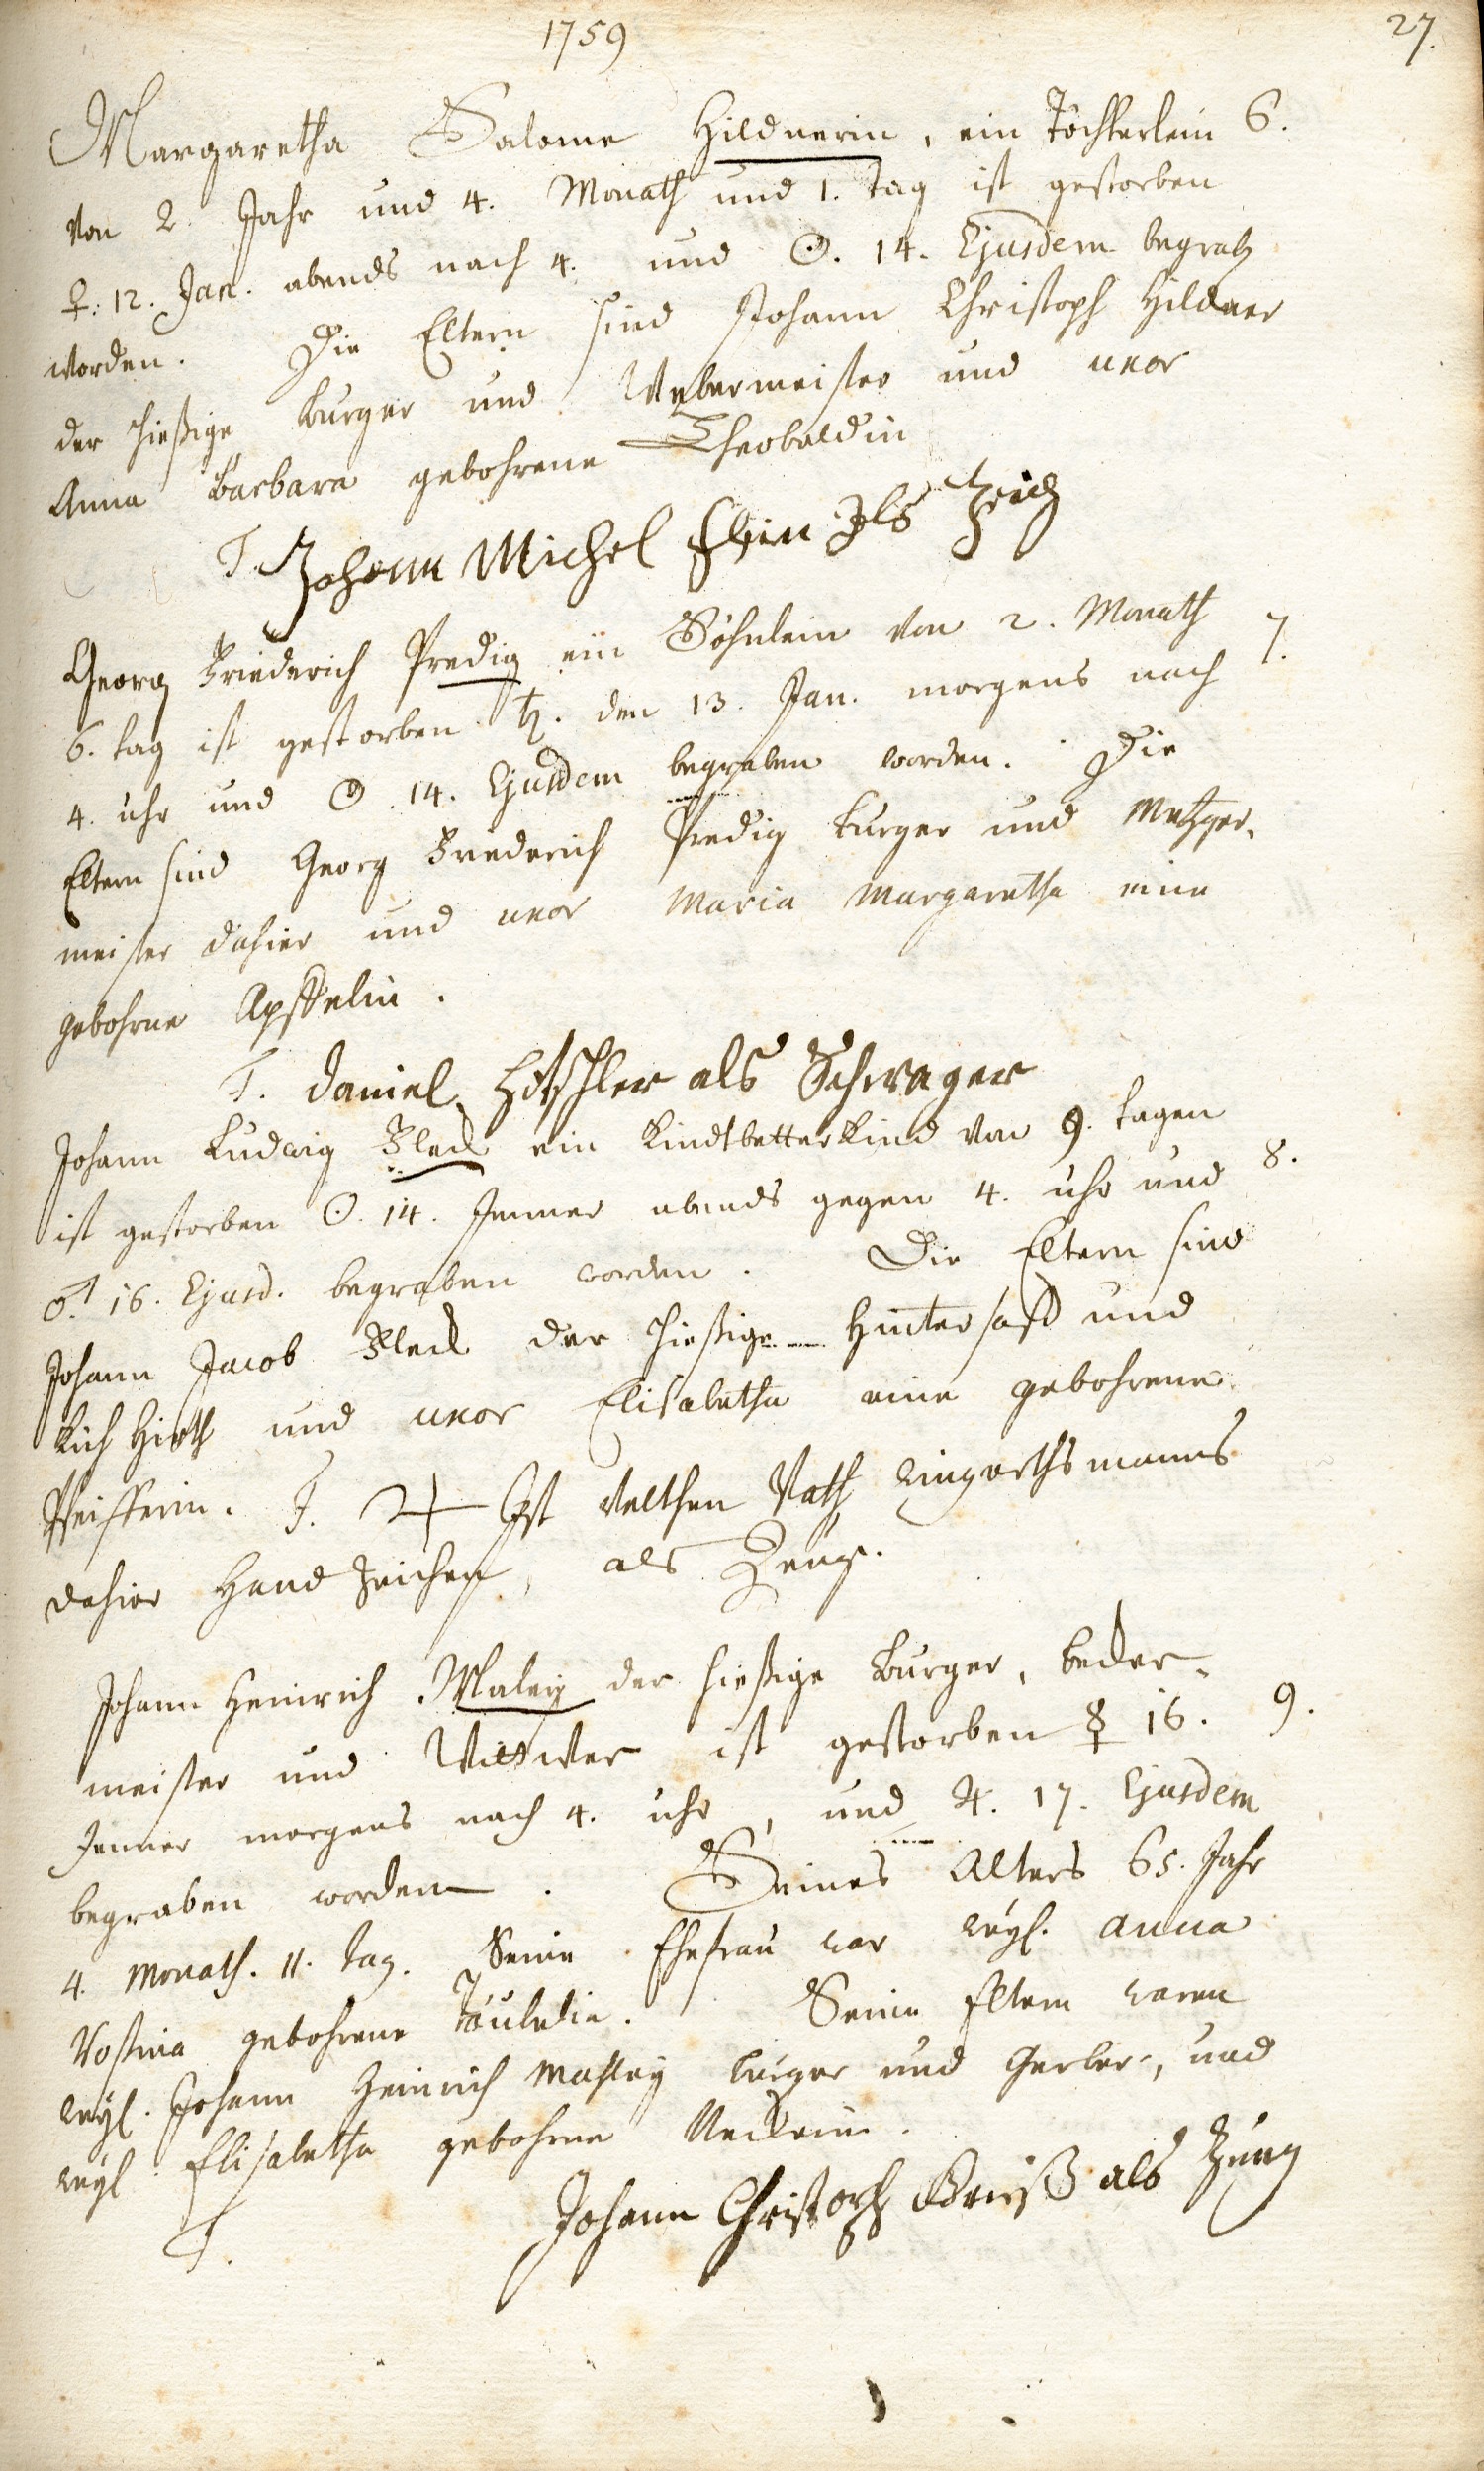 1759
27.
Margaretha Salome Hildnerin, ein Töchterlein 6.
von 2. Jahr und 4. Monath und 1. tag ist gestorben
♀. 12. Jan. abends nach 4. und ☉. 14. Ejusdem begrab
worden. Die Eltern sind Johann Christoph Hildner
der hießige Burger und Webermeister und uxor
Anna Barbara gebohrene Theobaldin
T. Johann Michel als
Georg Friederich Predig ein Söhnlein von 2. Monath 7.
6. tag ist gestorben ♄. den 13. Jan. morgens nach
4. uhr und ☉ 14. Ejusdem begraben worden. Die
Eltern sind Georg Friederich Predig burger und Metzger-
meister dahier und uxor Maria Margaretha eine
gebohrne
T. Daniel als Schwager
Johann Ludwig Fleck ein Kindtbetterkind von 9. tagen
ist gestorben ☉. 14. Jenner abends gegen 4. uhr und 8.
♂. 16. Ejusd. begraben worden. Die Eltern sind
Johann Jacob Fleck der hießige Hintersaß und
Küh Hirth und uxor Elisabetha eine gebohrene
Pfeifferin. T. Ist Velthen
dahier Hand Zeichen, als Zeug.
Johann Heinrich Maley der hießige Burger, beder-
meister und Wittwer ist gestorben ☿ 16. 9.
Jenner morgens nach 4. uhr, und ♃. 17. Ejusdem
begraben worden. Seines Alters 65. Jahr
4. Monath. 11. tag. Seine Ehefrau war weyl. Anna
gebohrene Seine Eltern waren
weyl. Johann Heinrich Mahley burger und Gerber, und
weyl. Elisabetha gebohrne
T. Johann Christoph als Zeug